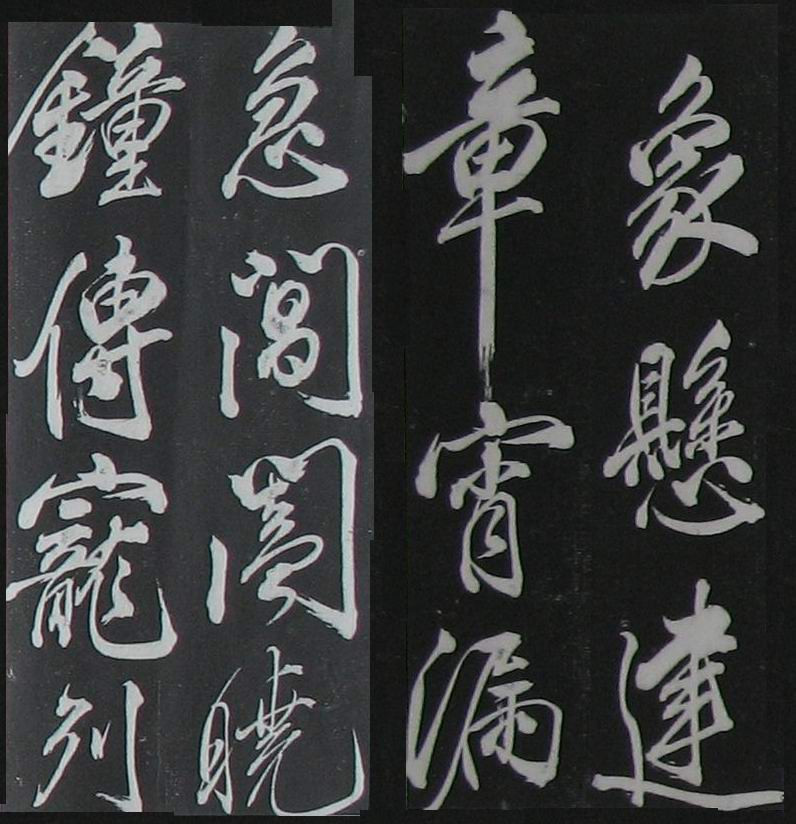 象懸達
章宵漏
急閶闔曉
鐘傳寵列